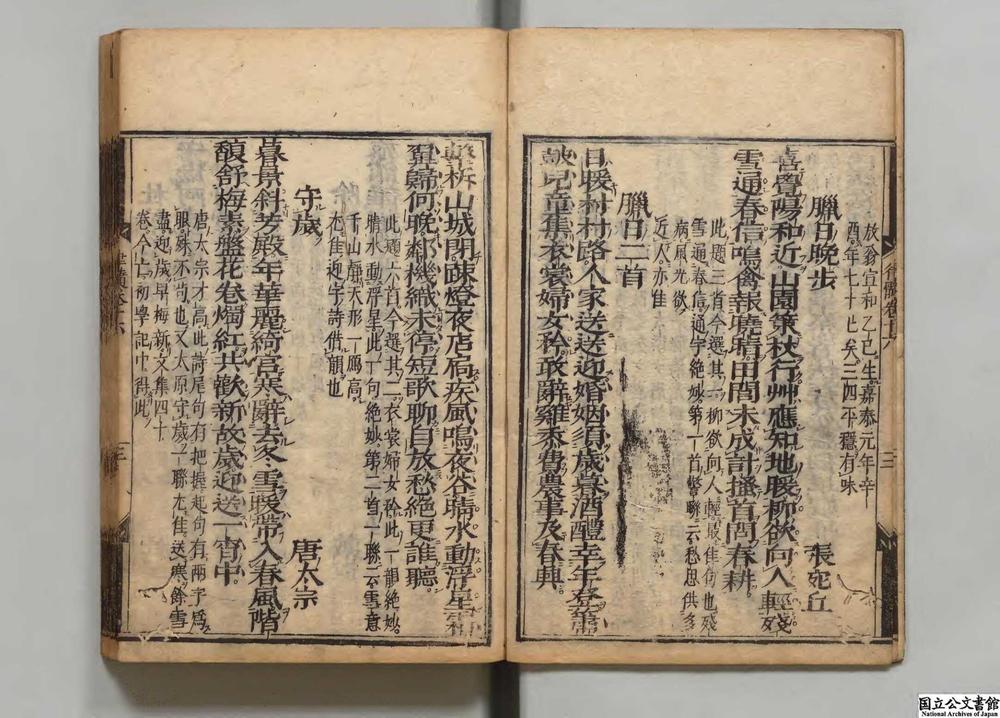 放翁宣和乙巳生嘉泰元年辛
酉年七十七矣三四平穩有味
臘日晚步 張宛丘
喜覺陽和近山園策杖行艸應知地暖柳欲向人輕殘
雪通春信鳴禽報曉晴田間未成計搔首問春耕
此題三首今選其一柳欲向人輕最佳句也殘
雪通春信通字絶妙第一首聯云愁思供多
病風光欲
近人亦佳
臘日二首
日暖村村路人家送送迎婚姻須歲暮酒醴幸年登簫
鼓兒童集衣裳婦女矜敢辭雞黍費農事及春興
擊柝山城閉疎燈夜店扃疾風鳴夜谷晴水動浮星霜
翼歸何晚鄰機織未停短歌聊自放愁絶更誰聽
此題六首今選其二衣裳婦女矜此一韻絶妙
晴水動浮星此一句絶妙第二首一聯云雪意
千山靜天形一鴈高
尤佳迎字詩借韻也
守歲 唐太宗
暮景斜芳殿年華麗綺宮寒辭去冬雪暖帶入春風階
馥舒梅素盤花卷燭紅共歡新故歲迎送一宵中
唐太宗才高此詩尾句有把握起句有兩字爲
眼殊不苟也又太原守歲一聯尤佳送寒餘雪
盡迎歲早梅新文集四十
卷今亡初學記中得此
三
三
国立公文書館
National Archives of Japan